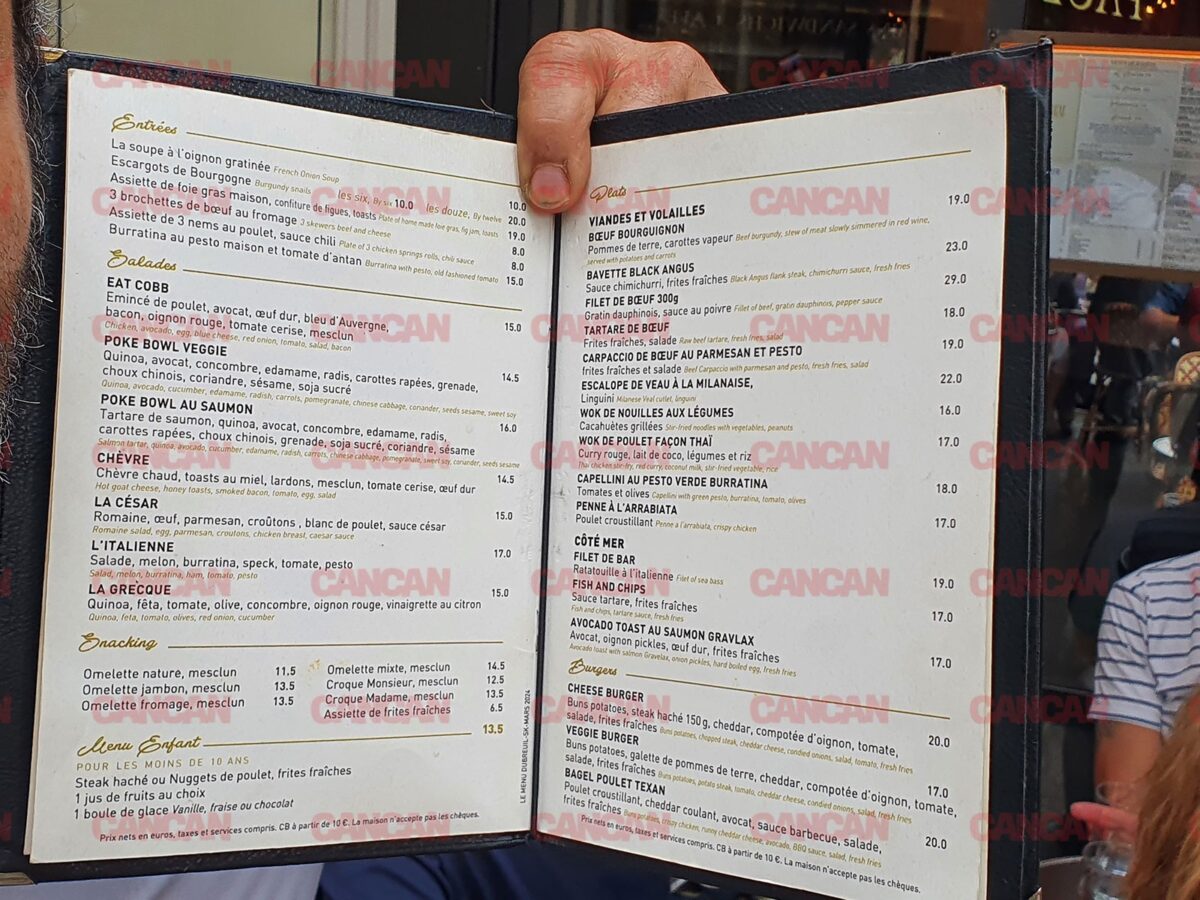 Entrées
La soupe à l'oignon gratinée French Onion Soup 10.0
Escargots de Bourgogne Burgundy snails les six, By six 10.0 les douze, By twelve 20.0
Assiette de foie gras maison, confiture de figues, toasts Plate of home made foie gras, fig jam, toasts 19.0
3 brochettes de bœuf au fromage 3 skewers beef and cheese 8.0
Assiette de 3 nems au poulet, sauce chili Plate of 3 chicken springs rolls, chili sauce 8.0
Burratina au pesto maison et tomate d'antan Burratina with pesto, old fashioned tomato 15.0
Salades
EAT COBB
Emincé de poulet, avocat, œuf dur, bleu d'Auvergne,
bacon, oignon rouge, tomate cerise, mesclun 15.0
Chicken, avocado, egg, blue cheese, red onion, tomato, salad, bacon
POKE BOWL VEGGIE
Quinoa, avocat, concombre, edamame, radis, carottes rapées, grenade,
choux chinois, coriandre, sésame, soja sucré 14.5
Quinoa, avocado, cucumber, edamame, radish, carrots, pomegranate, chinese cabbage, coriander, seeds sesame, sweet soy
POKE BOWL AU SAUMON
Tartare de saumon, quinoa, avocat, concombre, edamame, radis, 16.0
carottes rapées, choux chinois, grenade, soja sucré, coriandre, sésame
Salmon tartar, quinoa, avocado, cucumber, edamame, radish, carrots, chinese cabbage, pomegranate, sweet soy, coriander, seeds sesame
CHÈVRE
Chèvre chaud, toasts au miel, lardons, mesclun, tomate cerise, œuf dur 14.5
Hot goat cheese, honey toasts, smoked bacon, tomato, egg, salad
LA CÉSAR
Romaine, œuf, parmesan, croûtons , blanc de poulet, sauce césar 15.0
Romaine salad, egg, parmesan, croutons, chicken breast, caesar sauce
L'ITALIENNE
Salade, melon, burratina, speck, tomate, pesto 17.0
Salad, melon, burratina, ham, tomato, pesto
LA GRECQUE
Quinoa, fêta, tomate, olive, concombre, oignon rouge, vinaigrette au citron 15.0
Quinoa, feta, tomato, olives, red onion, cucumber
Snacking
Omelette nature, mesclun 11.5
Omelette jambon, mesclun 13.5
Omelette fromage, mesclun 13.5
Omelette mixte, mesclun 14.5
Croque Monsieur, mesclun 12.5
Croque Madame, mesclun 13.5
Assiette de frites fraîches 6.5
Menu Enfant 13.5
POUR LES MOINS DE 10 ANS
Steak haché ou Nuggets de poulet, frites fraîches
1 jus de fruits au choix
1 boule de glace Vanille, fraise ou chocolat
Prix nets en euros, taxes et services compris. CB à partir de 10 €. La maison n'accepte pas les chèques.
LE MENU DUBREUIL-SK-MARS 2024
Plats
VIANDES ET VOLAILLES
BŒUF BOURGUIGNON 19.0
Pommes de terre, carottes vapeur Beef burgundy, stew of meat slowly simmered in red wine,
served with potatoes and carrots
BAVETTE BLACK ANGUS 23.0
Sauce chimichurri, frites fraîches Black Angus flank steak, chimichurri sauce, fresh fries
FILET DE BŒUF 300g 29.0
Gratin dauphinois, sauce au poivre Filet of beef, gratin dauphinois, pepper sauce
TARTARE DE BŒUF 18.0
Frites fraîches, salade Raw beef tartare, fresh fries, salad
CARPACCIO DE BŒUF AU PARMESAN ET PESTO 19.0
frites fraîches et salade Beef Carpaccio with parmesan and pesto, fresh fries, salad
ESCALOPE DE VEAU À LA MILANAISE, 22.0
Linguini Milanese Veal cutlet, linguini
WOK DE NOUILLES AUX LÉGUMES 16.0
Cacahuètes grillées Stir-fried noodles with vegetables, peanuts
WOK DE POULET FAÇON THAÏ 17.0
Curry rouge, lait de coco, légumes et riz
Thai chicken stir-fry, red curry, coconut milk, stir-fried vegetable, rice
CAPELLINI AU PESTO VERDE BURRATINA 18.0
Tomates et olives Capellini with green pesto, burratina, tomato, olives
PENNE À L'ARRABIATA 17.0
Poulet croustillant Penne a l'arrabiata, crispy chicken
CÔTÉ MER
FILET DE BAR 19.0
Ratatouille à l'italienne Filet of sea bass
FISH AND CHIPS 17.0
Sauce tartare, frites fraîches
Fish and chips, tartare sauce, fresh fries
AVOCADO TOAST AU SAUMON GRAVLAX 17.0
Avocat, oignon pickles, œuf dur, frites fraîches
Avocado toast with salmon Gravelax, onion pickles, hard boiled egg, fresh fries
Burgers
CHEESE BURGER
Buns potatoes, steak haché 150 g, cheddar, compotée d'oignon, tomate, 20.0
salade, frites fraîches Buns potatoes, chopped steak, cheddar cheese, candied onions, salad, tomato, fresh fries
VEGGIE BURGER
Buns potatoes, galette de pommes de terre, cheddar, compotée d'oignon, tomate, 17.0
salade, frites fraîches Buns potatoes, potato steak, tomato, cheddar cheese, candied onions, salad, fresh fries
BAGEL POULET TEXAN
Poulet croustillant, cheddar coulant, avocat, sauce barbecue, salade, 20.0
frites fraîches Buns potatoes, crispy chicken, runny cheddar cheese, avocado, BBQ sauce, salad, fresh fries
Prix nets en euros, taxes et services compris. CB à partir de 10 €. La maison n'accepte pas les chèques.
CANCAN